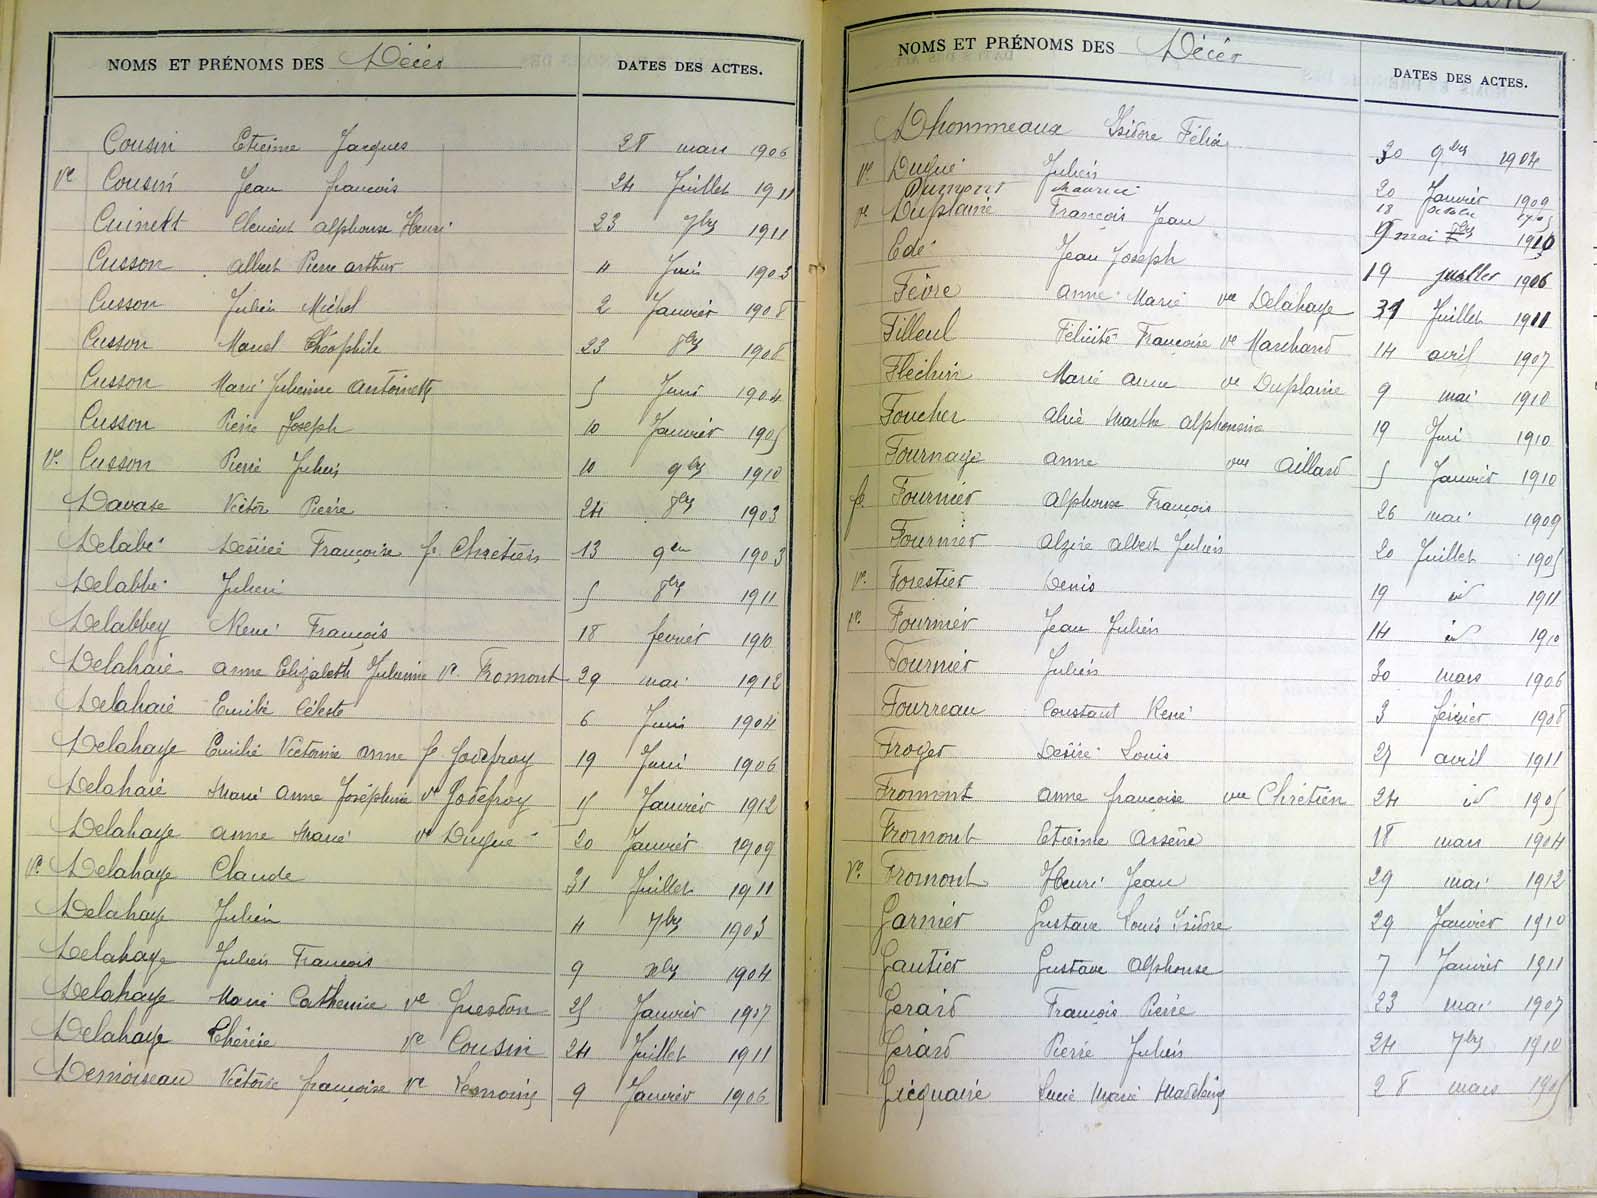 NOMS ET PRÉNOMS DES Décès DATES DES ACTES.
Cousin Etienne Jacques 28 mars 1906
Ve Cousin Jean françois 24 Juillet 1911
Cuinett Clement alphonse Henri 23 7bre 1911
Cusson albert Pierre arthur 4 Juin 1903
Cusson Julien Michel 2 Janvier 1908
Cusson Marcel Théophile 23 8bre 1908
Cusson Marie Julienne antoinette 5 Juin 1904
Cusson Pierre Joseph 10 Janvier 1905
Ve Cusson Pierre Julien 10 9bre 1910
Davase Victor Pierre 24 8bre 1903
Delabé Désirée Françoise fe Chrétien 13 1903
Delabbé Julien 5 8bre 1911
Delabbey René François 18 février 1910
Delahaie anne Elizabeth Julienne ve Fromont 29 mai 1912
Delahaie Emile Céleste 6 Juin 1904
Delahaye Emilie Victorine anne fe Godefroy 19 Juin 1906
Delahaie Marie anne Joséphine ve Godefroy 15 Janvier 1912
Delahaye anne Marie ve Dugué 20 Janvier 1909
Ve Delahaye Claude 31 Juillet 1911
Delahaye Julien 4 7bre 1903
Delahaye Julien François 9 xbre 1904
Delahaye Marie Catherine ve Guesdon 25 Janvier 1907
Delahaye Thérèse ve Cousin 24 Juillet 1911
Demoiseau Victoire françoise ve 9 Janvier 1906
NOMS ET PRÉNOMS DES Décès DATES DES ACTES.
Dhommeaux Isidore Félix 30 9bre 1904
Ve Dugué Julien 20 Janvier 1909
Dumont Maurice 13 octobre 1905
Ve Duplaine François Jean 9 mai 1910
Edé Jean Joseph 19 juillet 1906
Fèvre anne Marie vve Delahaye 31 Juillet 1911
Filleul Félicité Françoise ve Marchand 14 avril 1907
Fléchin Marie anne ve Duplaine 9 mai 1910
Foucher alice Marthe alphonsine 19 Juin 1910
Fournaye anne vve aillard 5 Janvier 1910
fe Fournier alphonse François 26 mai 1909
Fournier alzire albert Julien 20 Juillet 1905
Ve Forestier Denis 19 id 1911
Ve Fournier Jean Julien 14 id 1910
Fournier Julien 30 mars 1906
Fourreau Constant René 3 février 1908
Froger Désiré Louis 27 avril 1911
Fromont anne françoise vve Chrétien 24 id 1905
Fromont Etienne arsène 18 mars 1904
Ve Fromont Henri Jean 29 mai 1912
Garnier Gustave Louis Isidore 29 Janvier 1910
Gautier Gustave alphonse 7 Janvier 1911
Gerard François Pierre 23 mai 1907
Gérard Pierre Julien 24 7bre 1910
Gicquaire Lucie Marie Madeleine 28 mars 1905